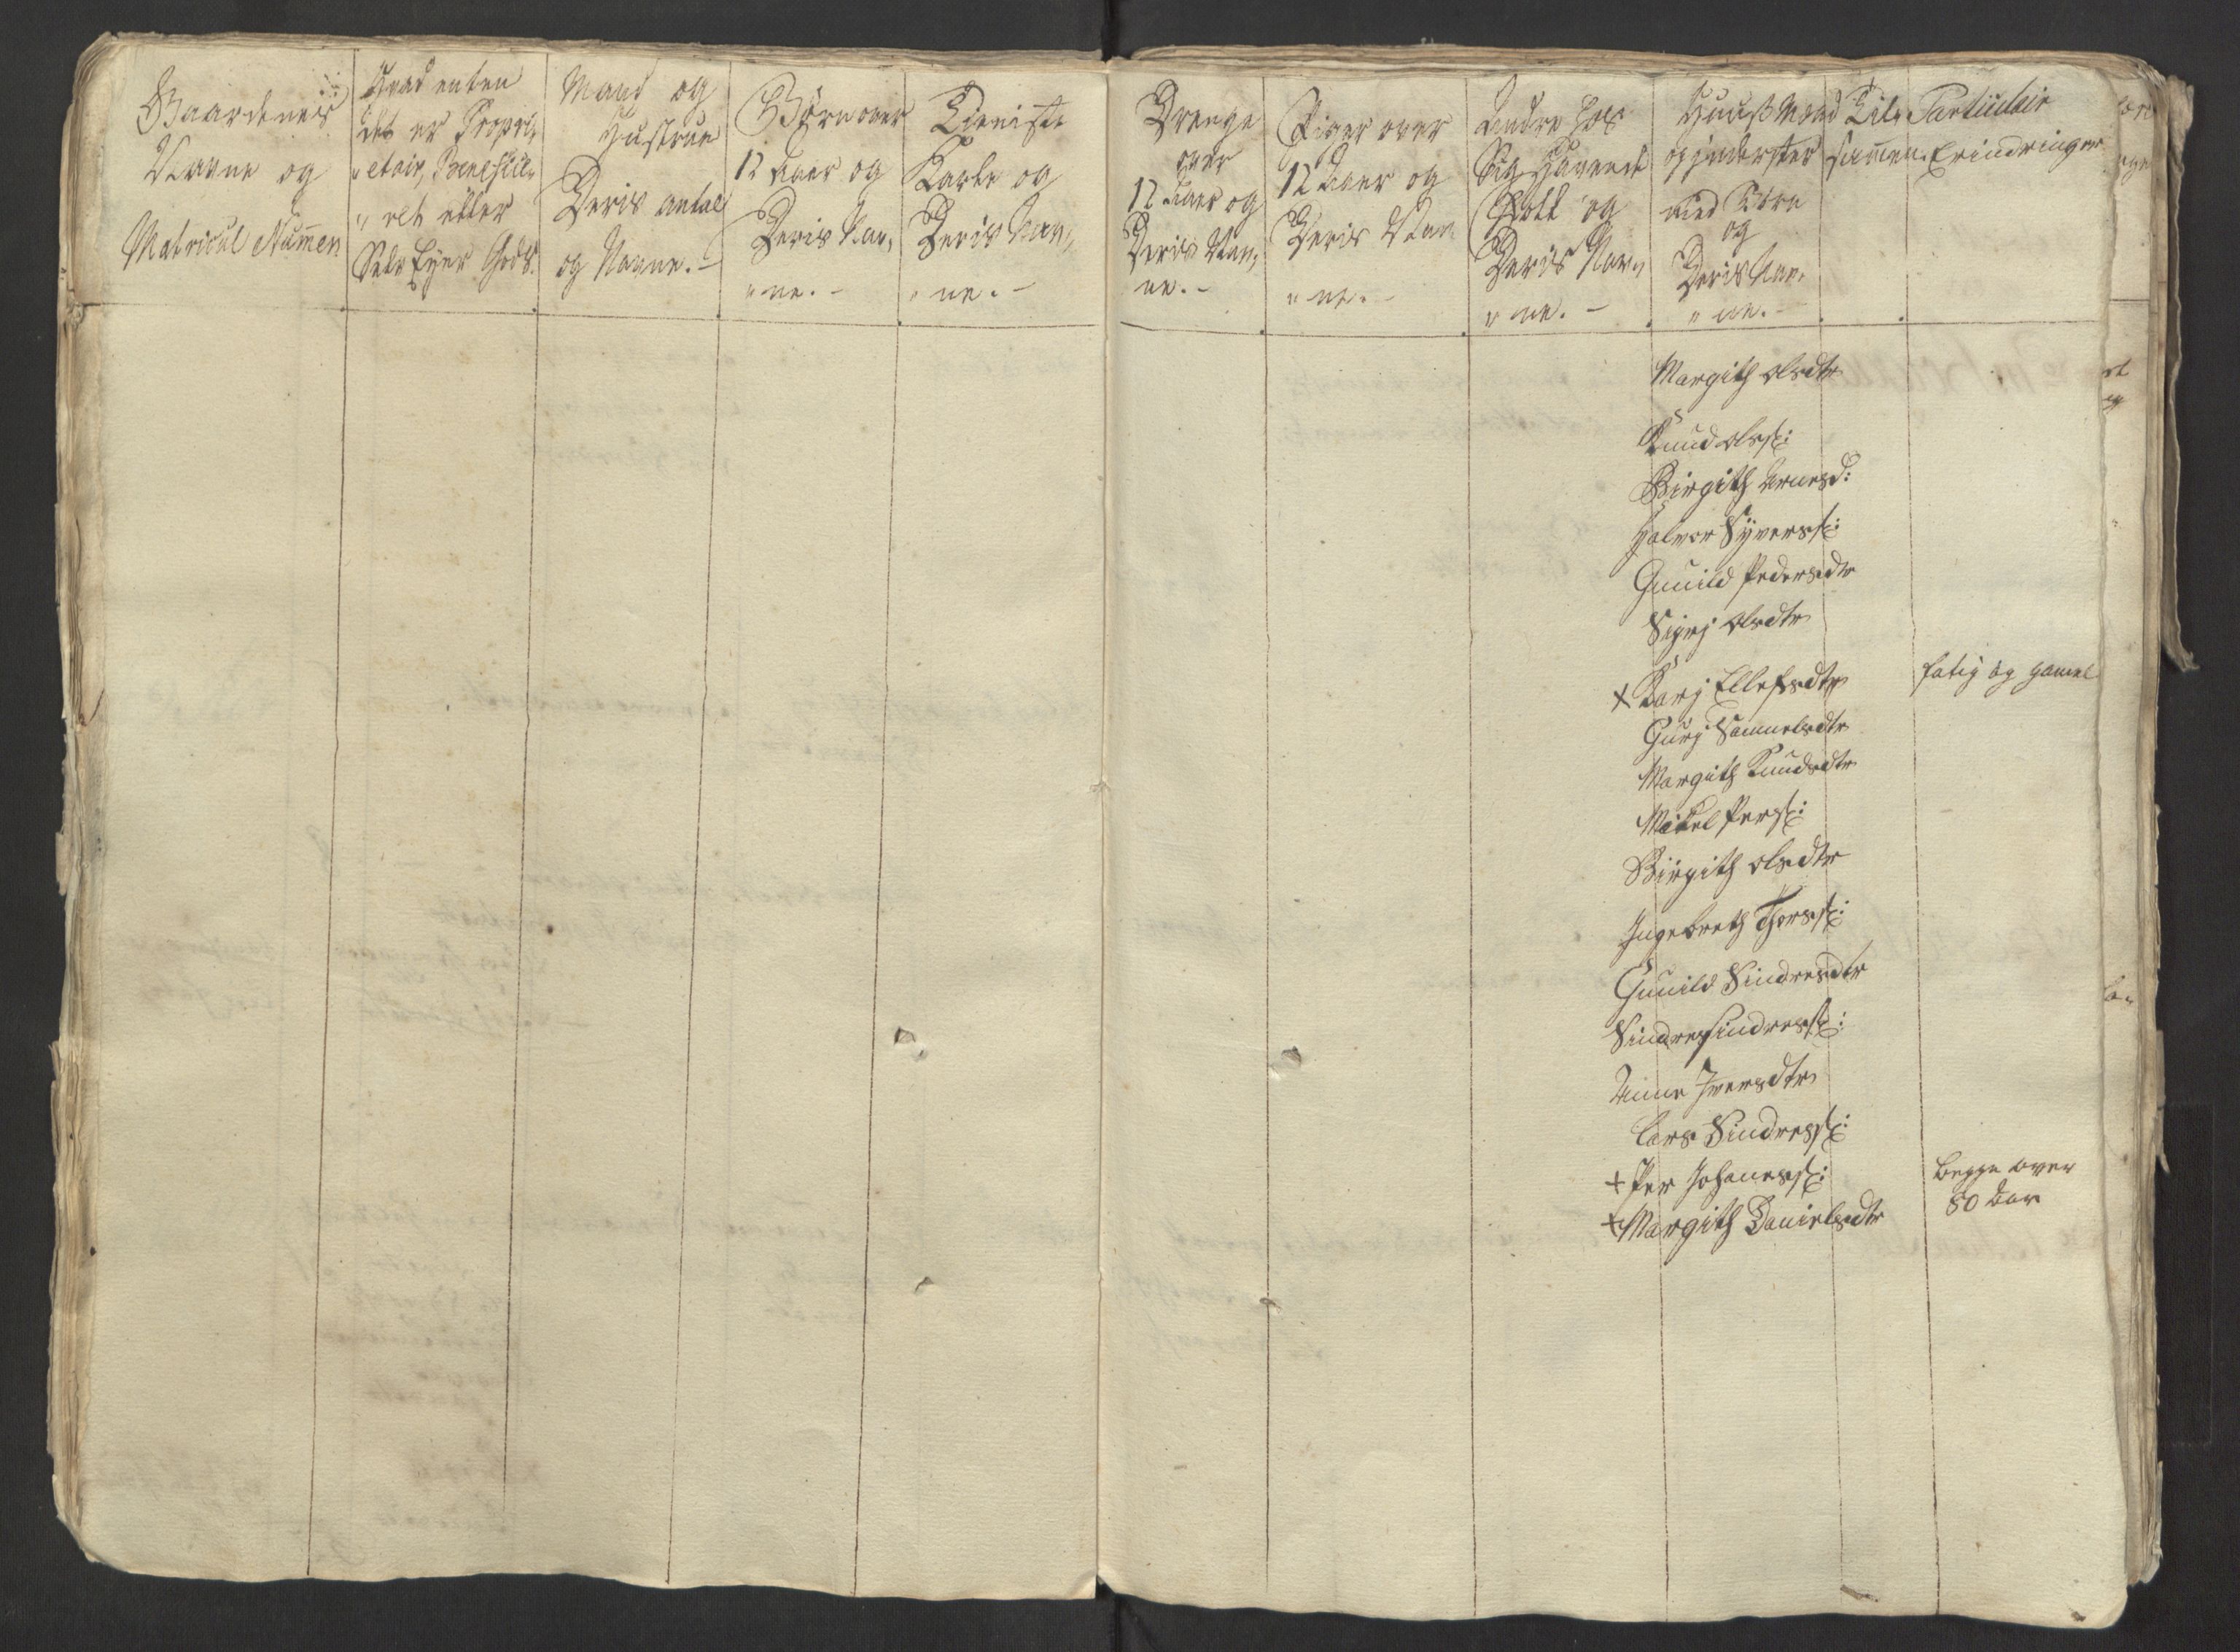 Gaardenes
Navne og
Matricul Numer
Hvad enten
det er Propri-
"etair, Benefici-
" elt eller
Selv Eyer Gods.
Mand og
Hustrue
Deris antal
og Navne. -
Børn over
12 Aaer og
Deris Nav,
" ne. -
Tieniste
Karle og
Deris Nav,
" ne. -
Drenge
over
12 Aaer og
Deris Nav,
ne. -
Piger over
12 Aaer og
Deris Nav
" ne. -
Andre hos
Sig Havende
Folk og
Deris Nav,
" ne. -
Huusmænd
og inderster
med Børn
og
Deris Nav,
" ne. -
Tils
sammen.
Particulair
Erindringer
Margith Olsdtr
Knud Olss:
Birgith Arnesd:
Halvor Syverss:
Gunild Pedersdtr
Sigrj Olsdtr
+ Karj Ellefsdtr
fatig og gamel
Gurj Samuelsdtr
Margith Knudsdtr
Mikel Pers:
Birgith Olsdtr
Ingebreth Thorss:
Gunild Sindresdtr
Sindre Sindress:
Anne Iversdtr
Lars Sindress:
+ Per Johaness:
+ Margith Danielsdtr
begge over
80 Aar